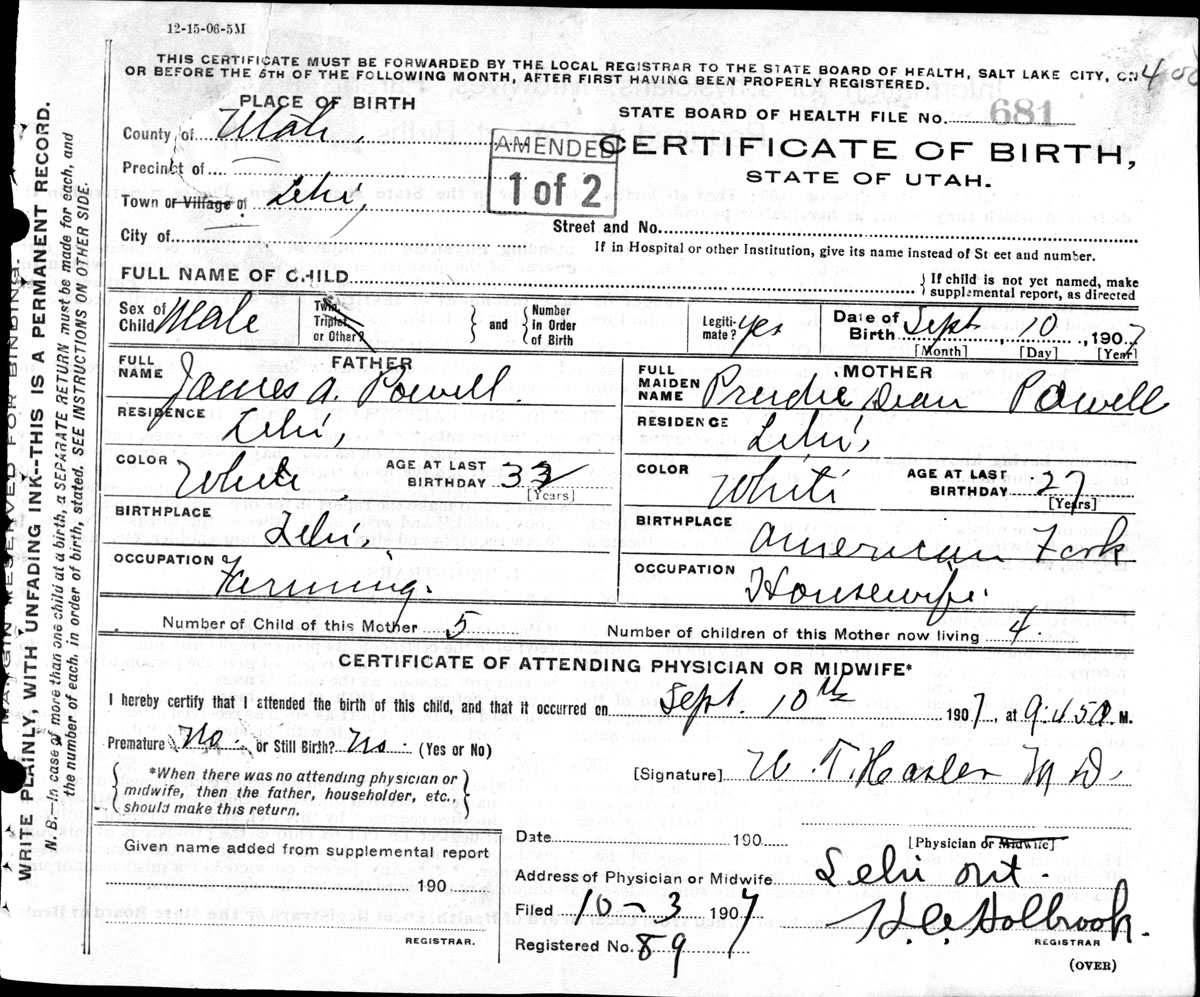 12-15-06-5M
THIS CERTIFICATE MUST BE FORWARDED BY THE LOCAL REGISTRAR TO THE STATE BOARD OF HEALTH, SALT LAKE CITY, ON
OR BEFORE THE 5TH OF THE FOLLOWING MONTH, AFTER FIRST HAVING BEEN PROPERLY REGISTERED.
PLACE OF BIRTH
County of Utah
Precinct of
Town or Village of Lehi,
City of
AMENDED
1 of 2
STATE BOARD OF HEALTH FILE No. 681
CERTIFICATE OF BIRTH,
STATE OF UTAH.
Street and No.
If in Hospital or other Institution, give its name instead of St eet and number.
FULL NAME OF CHILD
If child is not yet named, make
supplemental report, as directed
Sex of Child Male
Twin, Triplet, or Other?
and
Number in Order of Birth
Legiti-mate? yes
Date of Birth Sept. 10, 1907
[Month] [Day] [Year]
FATHER
FULL NAME James A. Powell.
RESIDENCE Lehi,
COLOR White
AGE AT LAST BIRTHDAY
[Years]
BIRTHPLACE Lehi,
OCCUPATION Farming.
MOTHER
FULL MAIDEN NAME Dean Powell
RESIDENCE Lehi,
COLOR White
AGE AT LAST BIRTHDAY 27
[Years]
BIRTHPLACE American Fork
OCCUPATION Housewife.
Number of Child of this Mother 5
Number of children of this Mother now living 4
CERTIFICATE OF ATTENDING PHYSICIAN OR MIDWIFE*
I hereby certify that I attended the birth of this child, and that it occurred on Sept. 10th 1907, at 9:45 M.
Premature No. or Still Birth? No. (Yes or No)
*When there was no attending physician or
midwife, then the father, householder, etc.,
should make this return.
[Signature] M D.
Date 190
[Physician or Midwife]
Given name added from supplemental report
190
REGISTRAR.
Address of Physician or Midwife Lehi
Filed 10-3 1907
Registered No. 89
Holbrook.
REGISTRAR
(OVER)
MARGIN RESERVED FOR BINDING.
WRITE PLAINLY, WITH UNFADING INK--THIS IS A PERMANENT RECORD.
N. B.—In case of more than one child at a birth, a SEPARATE RETURN must be made for each, and
the number of each, in order of birth, stated. SEE INSTRUCTIONS ON OTHER SIDE.